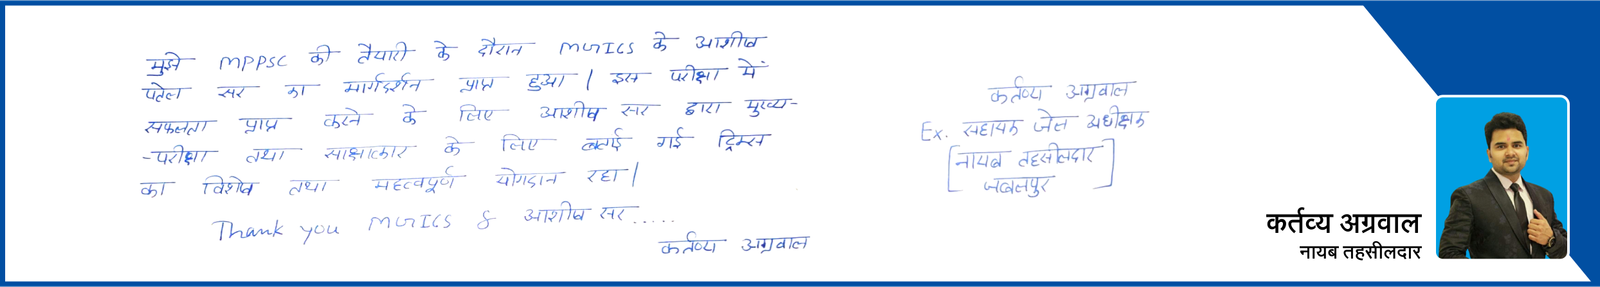 मुझे MPPSC की तैयारी के दौरान MGICS के आशीष
पटेल सर का मार्गदर्शन प्राप्त हुआ। इस परीक्षा में
सफलता प्राप्त करने के लिए आशीष सर द्वारा मुख्य-
-परीक्षा तथा साक्षात्कार के लिए बताई गई ट्रिक्स
का विशेष तथा महत्वपूर्ण योगदान रहा।
Thank you MGICS & आशीष सर.....
कर्तव्य अग्रवाल
कर्तव्य अग्रवाल
Ex. सहायक जेल अधीक्षक
[नायब तहसीलदार
जबलपुर]
कर्तव्य अग्रवाल
नायब तहसीलदार